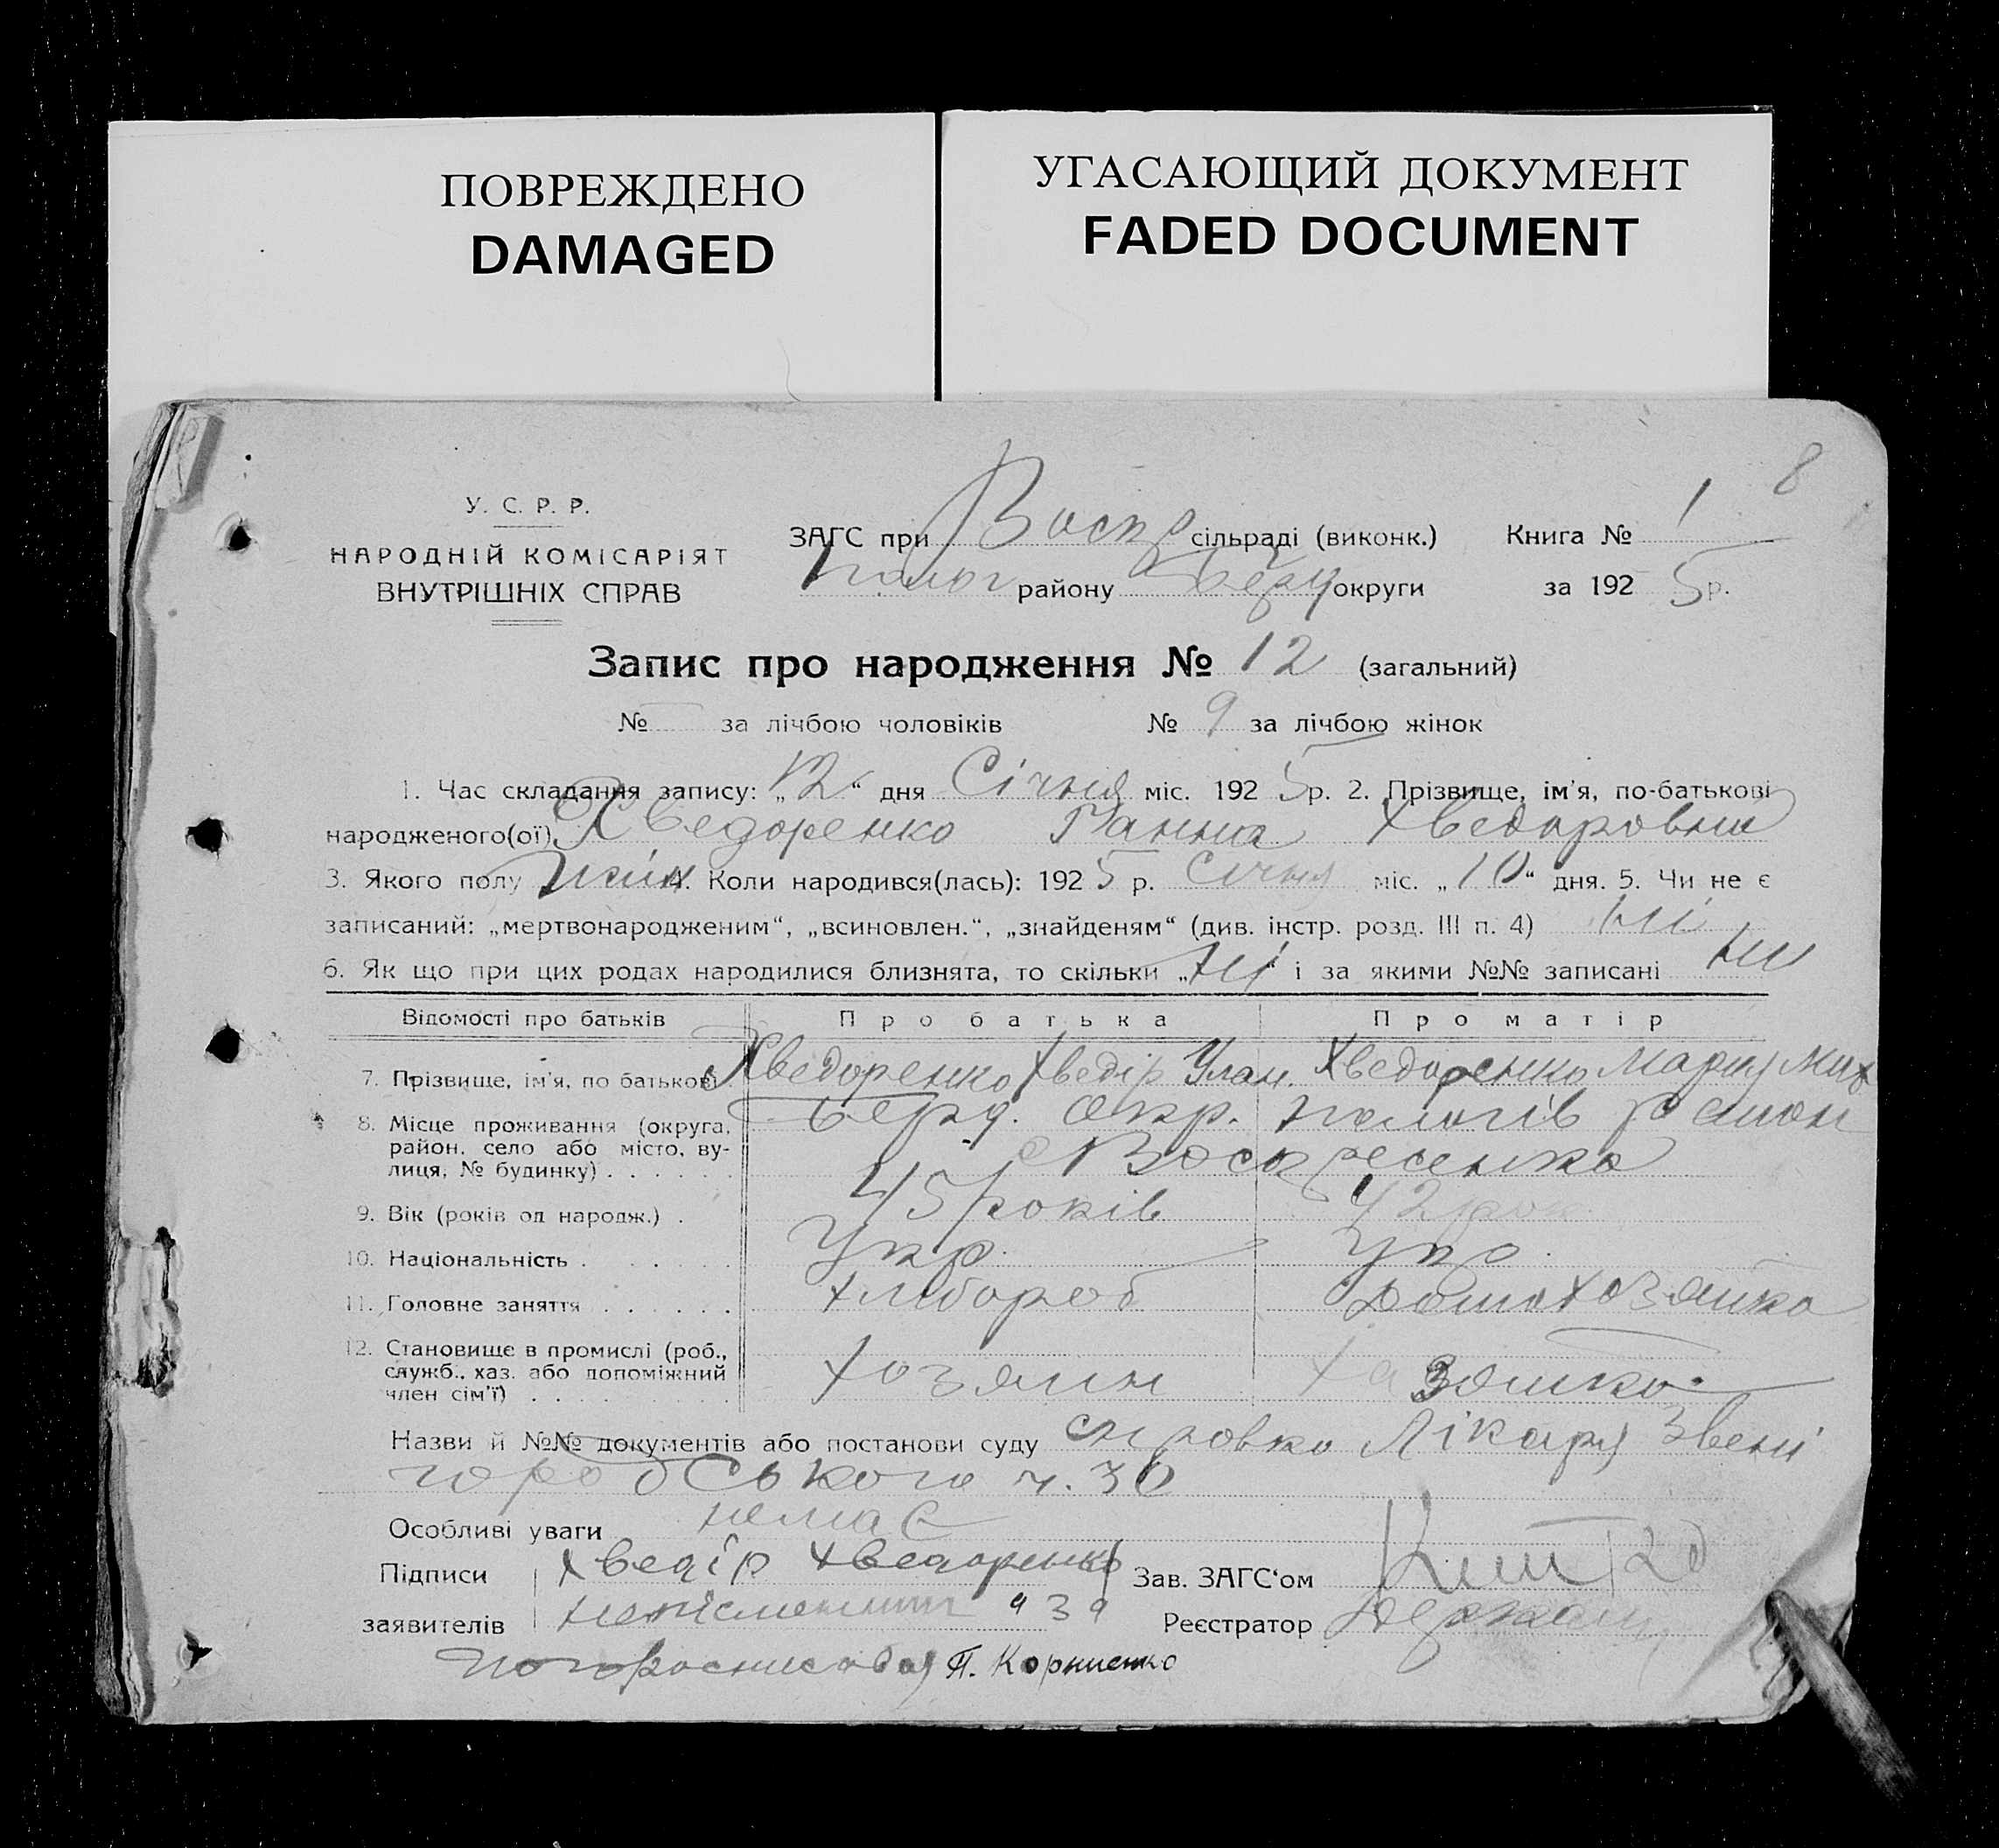 ПОВРЕЖДЕНО
DAMAGED
УГАСАЮЩИЙ ДОКУМЕНТ
FADED DOCUMENT
8
У. С. Р. Р.
НАРОДНІЙ КОМІСАРІЯТ
ВНУТРІШНІХ СПРАВ
ЗАГС при Воскр сільраді (виконк.) Книга № 1
району Берд округи за 192 5 р.
Запис про народження № 12 (загальний)
№ за лічбою чоловіків № 9 за лічбою жінок
1. Час складання запису: „12“ дня Січня міс. 192 5 р. 2. Прізвище, ім'я, по-батькові
народженого(ої) Хведоренко Ганна Хведоровна
3. Якого полу жін 4. Коли народився(лась): 192 5 р. Січня міс. „10“ дня. 5. Чи не є
записаний: „мертвонародженим“, „всиновлен.“, „знайденям“ (див. інстр. розд. III п. 4) ні
6. Як що при цих родах народилися близнята, то скільки „ні“ і за якими №№ записані ні
Відомості про батьків Про батька Про матір
7. Прізвище, ім'я, по батькові Хведоренко Хведір Улан. Хведоренко Мария Мих
8. Місце проживання (округа, район, село або місто, вулиця, № будинку) Берд. окр. Пологів район
с Воскресенка
9. Вік (років од народж.) 45 років 42 рок
10. Національність Укр. Укр.
11. Головне заняття Хлібороб Домохозяйка
12. Становище в промислі (роб., служб., хаз. або допоміжний член сім'ї) Хозяин Хазяйка
Назви й №№ документів або постанови суду справка Лікаря Звені
городського ч. 36
Особливі уваги немає
Підписи Хведір Хведоренко Зав. ЗАГС'ом
заявителів неписменний Реєстратор
П. Корниенко